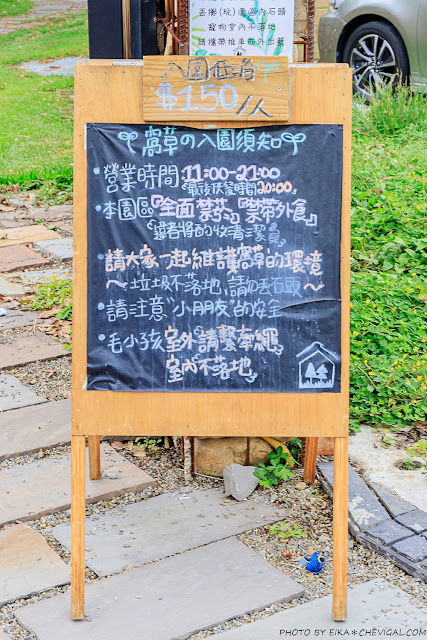 丟擲(玩)園區內石頭
寵物室內不落地
請攜帶推車或外出籠
入園低消
$150/人
窩草の入園須知
•營業時間:11:00-21:00
*最後供餐時間20:00
•本園區『全面禁菸』『禁帶外食』
違者將酌收清潔費
•請大家一起維護窩草的環境
~垃圾不落地,請勿丟石頭~
•請注意"小朋友"的安全
•毛小孩 室外請繫牽繩
室內不落地
PHOTO BY EIKA＊CHEVIGAL.COM